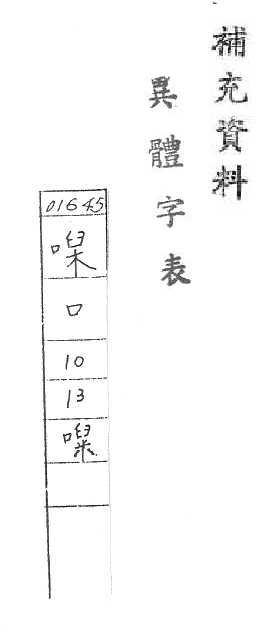 補充資料
異體字表
01645
口
10
13